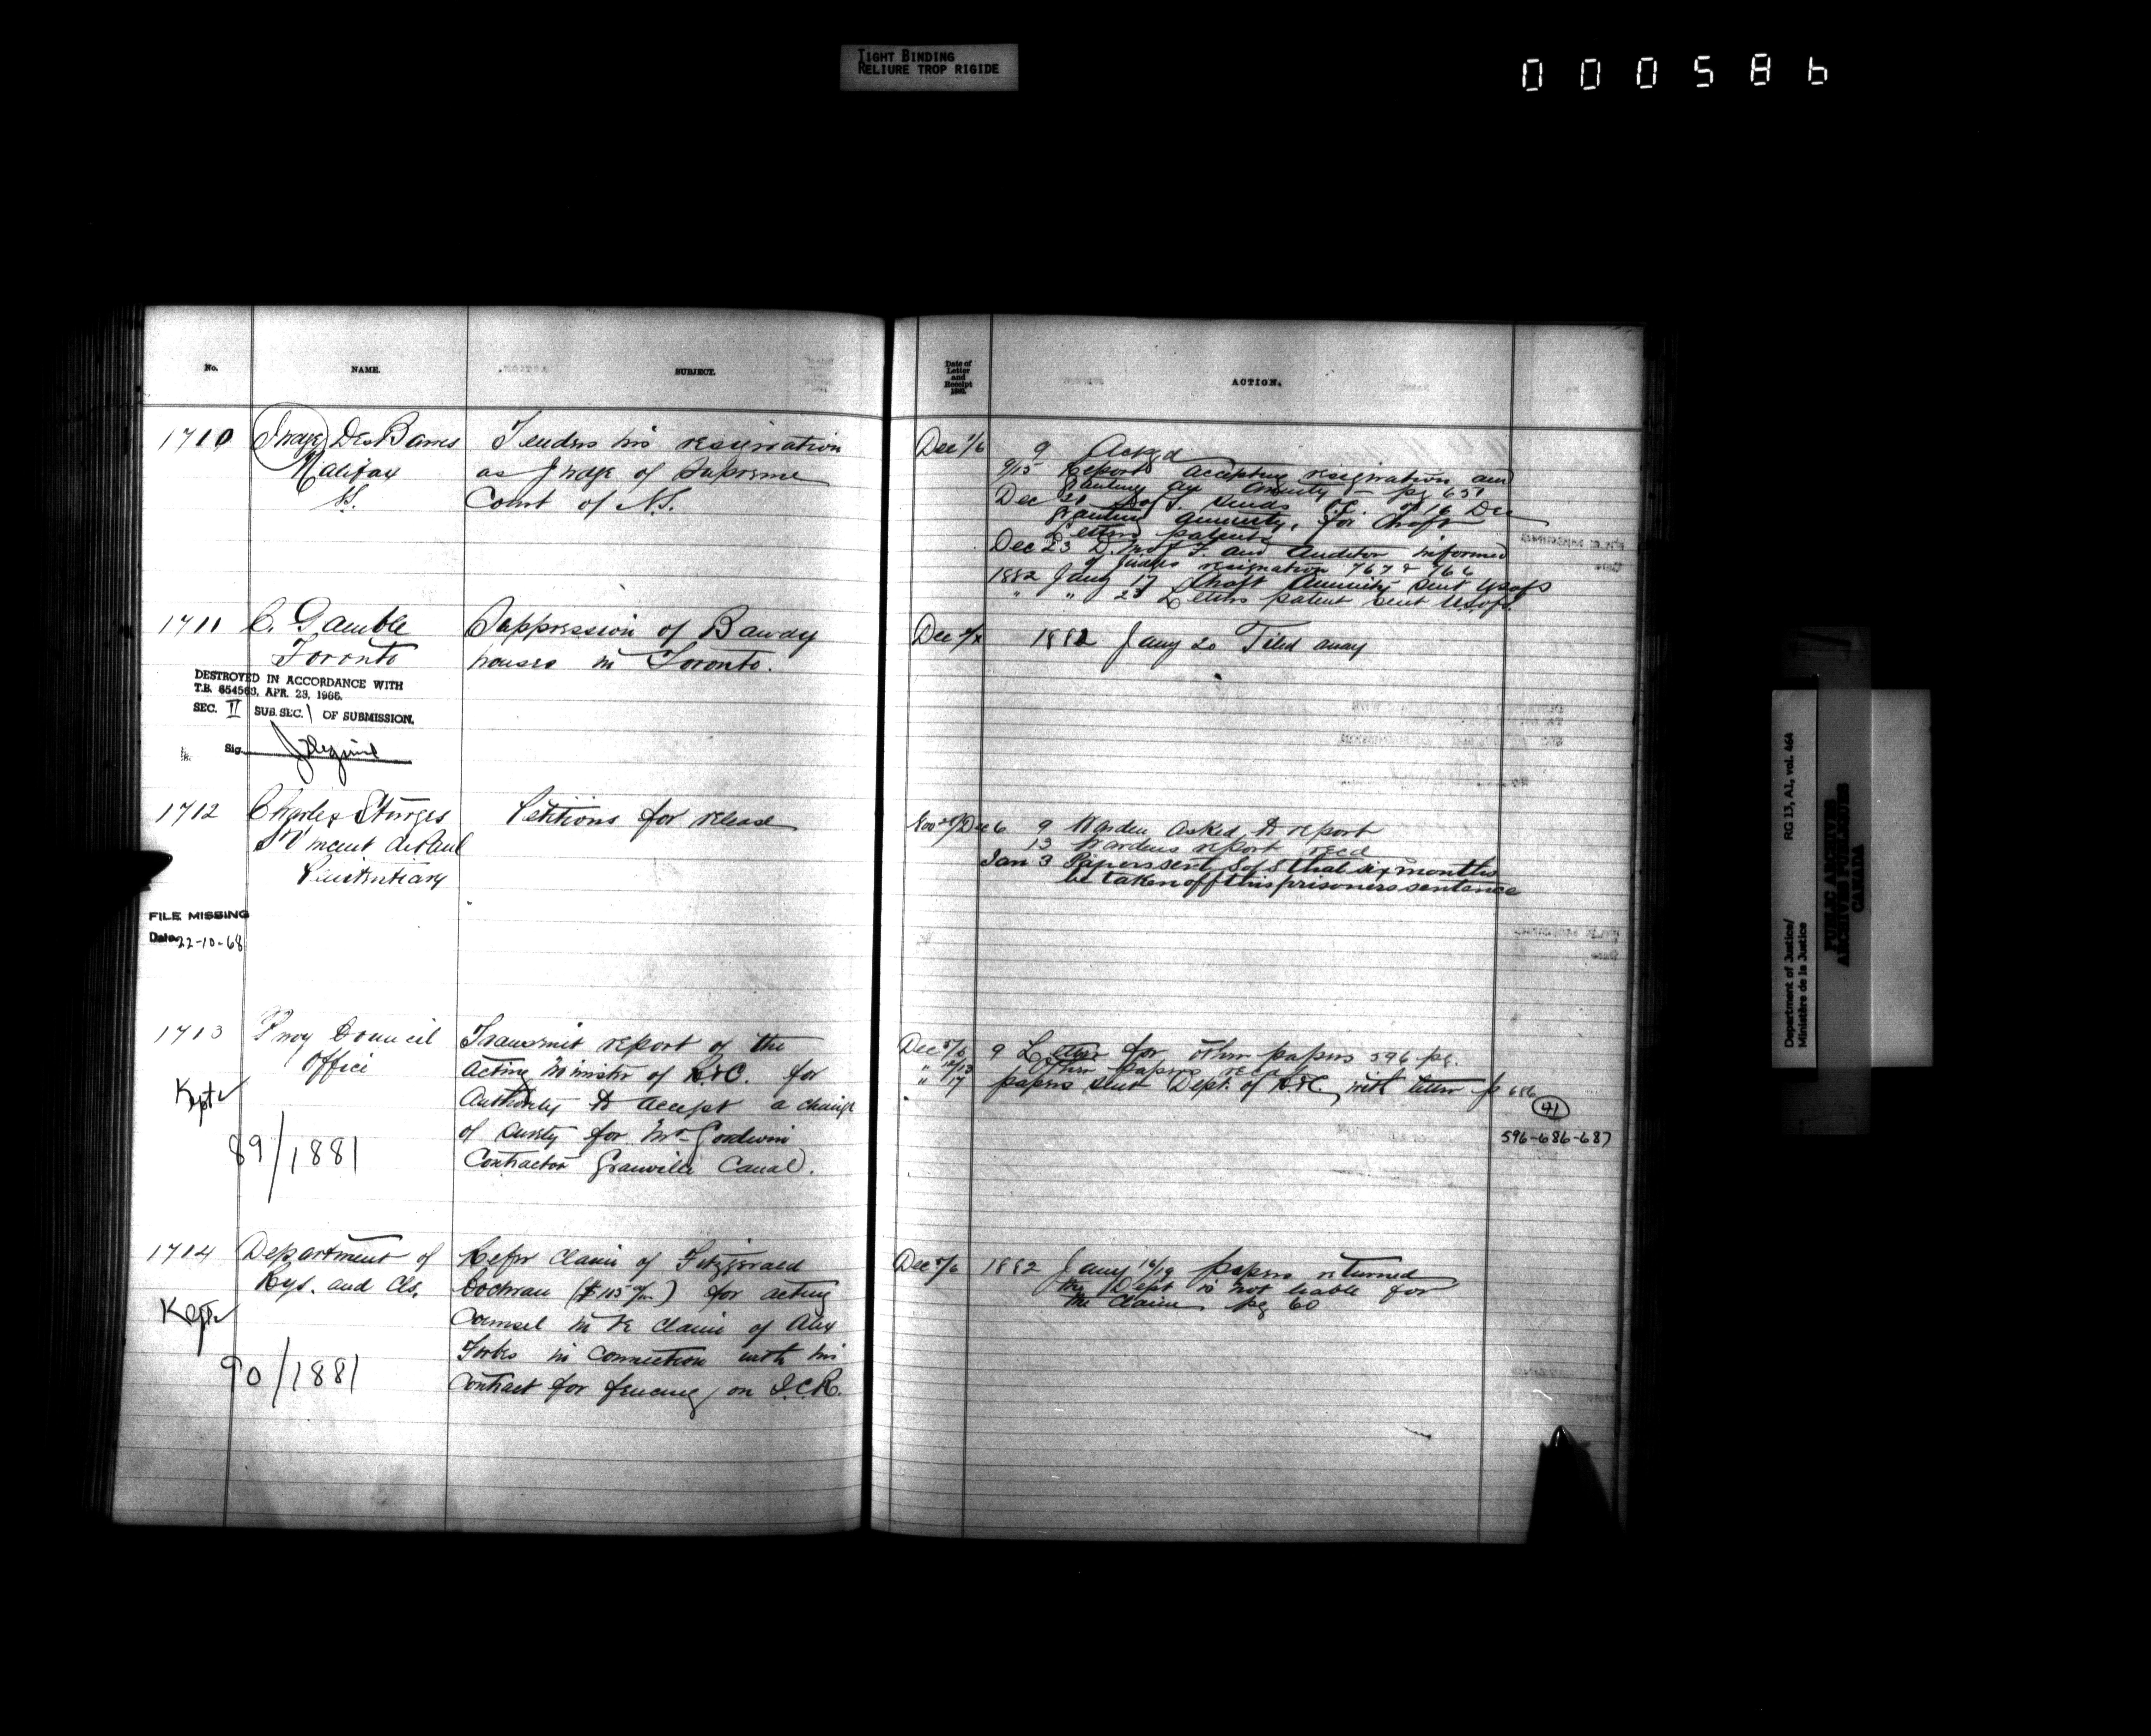 TIGHT BINDING
RELIURE TROP RIGIDE
000586
No. NAME. SUBJECT.
1710 Judge DesBarres Tenders his resignation
Halifax as Judge of Supreme
N.S. Court of N.S.
1711 C. Gamble Suppression of Bawdy
Toronto houses in Toronto.
DESTROYED IN ACCORDANCE WITH
T.B. 654563, APR. 23, 1966.
SEC. II SUB. SEC. 1 OF SUBMISSION.
Sig.
1712 Charles Sturges Petitions for release
St Vincent de Paul
Penitentiary
FILE MISSING
Date 22-10-68
1713 Privy Council Transmit report of the
Office acting Minister of R&C. for
Kept authority to accept a change
of surety for Mr Goodwin
89/1881 Contractor Granville Canal.
1714 Department of Refer claim of Fitzgerald
Rys. and Cls. Cochran ($115) for acting
Kept Counsel in re claim of Alex
Forbes in connection with his
90/1881 contract for fencing on I.C.R.
Date of
Letter
and
Receipt
ACTION.
Dec 1/6 9 Acked
9/15 Report accepting resignation and
granting an annuity - pg 651
Dec 21 S of S. sends O.C. of 16 Dec
granting annuity, for draft
Letters patents
Dec 23 D. M of F. and Auditor informed
of Judges resignation 767 & 766
1882 Jany 17 draft Annuity sent US of S
" " 23 Letters patent sent U.S. of S.
Dec 1882 Jany 20 Filed away
Nov /Dec 6 9 Warden asked to report
13 Wardens report recd
Jan 3 Papers sent S of S that six months
be taken off this prisoners sentence
Dec 5/6 9 Letter for other papers 596 pg.
" 12/13 Other papers recd
" 17 papers sent Dept. of R&C. with letter p 686
41
596-686-687
Dec 5/6 1882 Jany 16/19 papers returned
the Dept is not liable for
the claim pg 60
Department of Justice/
Ministère de la Justice
RG 13, A1, vol. 464
PUBLIC ARCHIVES
ARCHIVES PUBLIQUES
CANADA